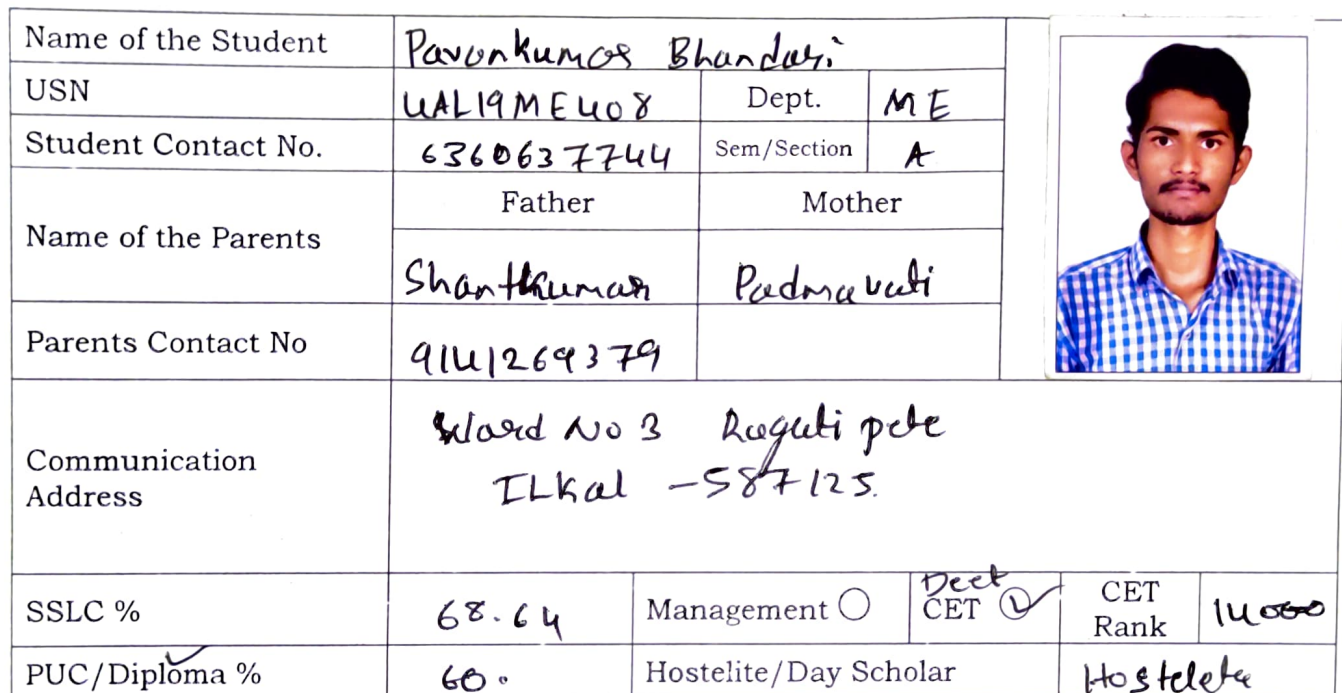 Name of the Student Pavankumar Bhandari
USN 4AL19ME408 Dept. ME
Student Contact No. 6360637744 Sem/Section A
Father Mother
Name of the Parents
Shantkumar Padmavati
Parents Contact No 9141269379
Ward No 3 pete
Communication
Address
ILKal -587125.
SSLC % 68.64 Management Dcet CET CET Rank 14000
PUC/Diploma % 60. Hostelite/Day Scholar Hostelete